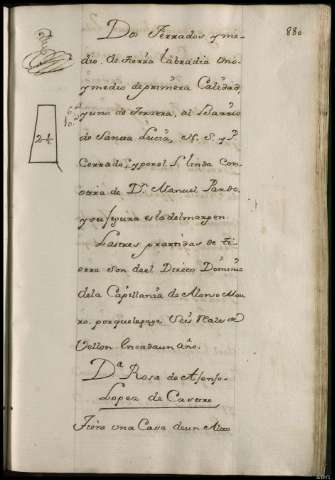 880
Dos Ferrados y me-
dio de tierra labradia uno
y medio de primera Calidad,
y uno de tercera, al Barrio
de Santa Lucia, N. S. y P.
Cerrado, y por el S. linda con
otra de Dn. Manuel Pardo,
y su figura es la del margen
2 1/2
Las tres partidas de tie-
rra son del Directo Dominio
de la Capellania de Alonso
por que le paga Seis Reales de
Vellon en cada un año.
Da. Rosa de Afonso-
Lopez de
una Casa de un Alto